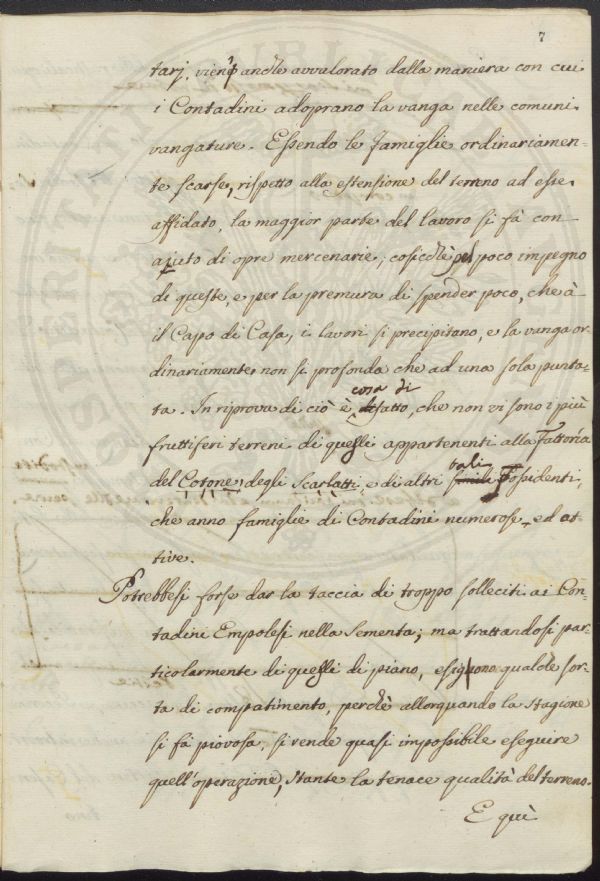 7
tarj, viene anche avvalorato dalla maniera con cui
i Contadini adoprano la vanga nelle comuni
vangature. Essendo le Famiglie ordinariamen-
te scarse, rispetto alla estensione del terreno ad esse
affidato, la maggior parte del lavoro si fà con
ajuto di opre mercenarie; cosicchè pel poco impegno
di queste, e per la premura di spender poco, che à
il Capo di Casa, i lavori si precipitano, e la vanga or-
dinariamente non si profonda che ad una sola punta-
cosa di
ta. In riprova di ciò è fatto, che non vi sono i più
fruttiferi terreni di quelli appartenenti alla Fattoría
tali
del Cotone degli Scarlatti, e di altri simili Possidenti,
che anno famiglie di Contadini numerose, ed at-
tive.
Potrebbesi forse dar la taccia di troppo solleciti ai Con-
tadini Empolesi nella Sementa; ma trattandosi par-
ticolarmente di quelli di piano, esigono qualche sor-
ta di compatimento, perchè allorquando la Stagione
si fà piovosa, si rende quasi impossibile eseguire
quell'operazione, stante la tenace qualità del terreno.
E quì